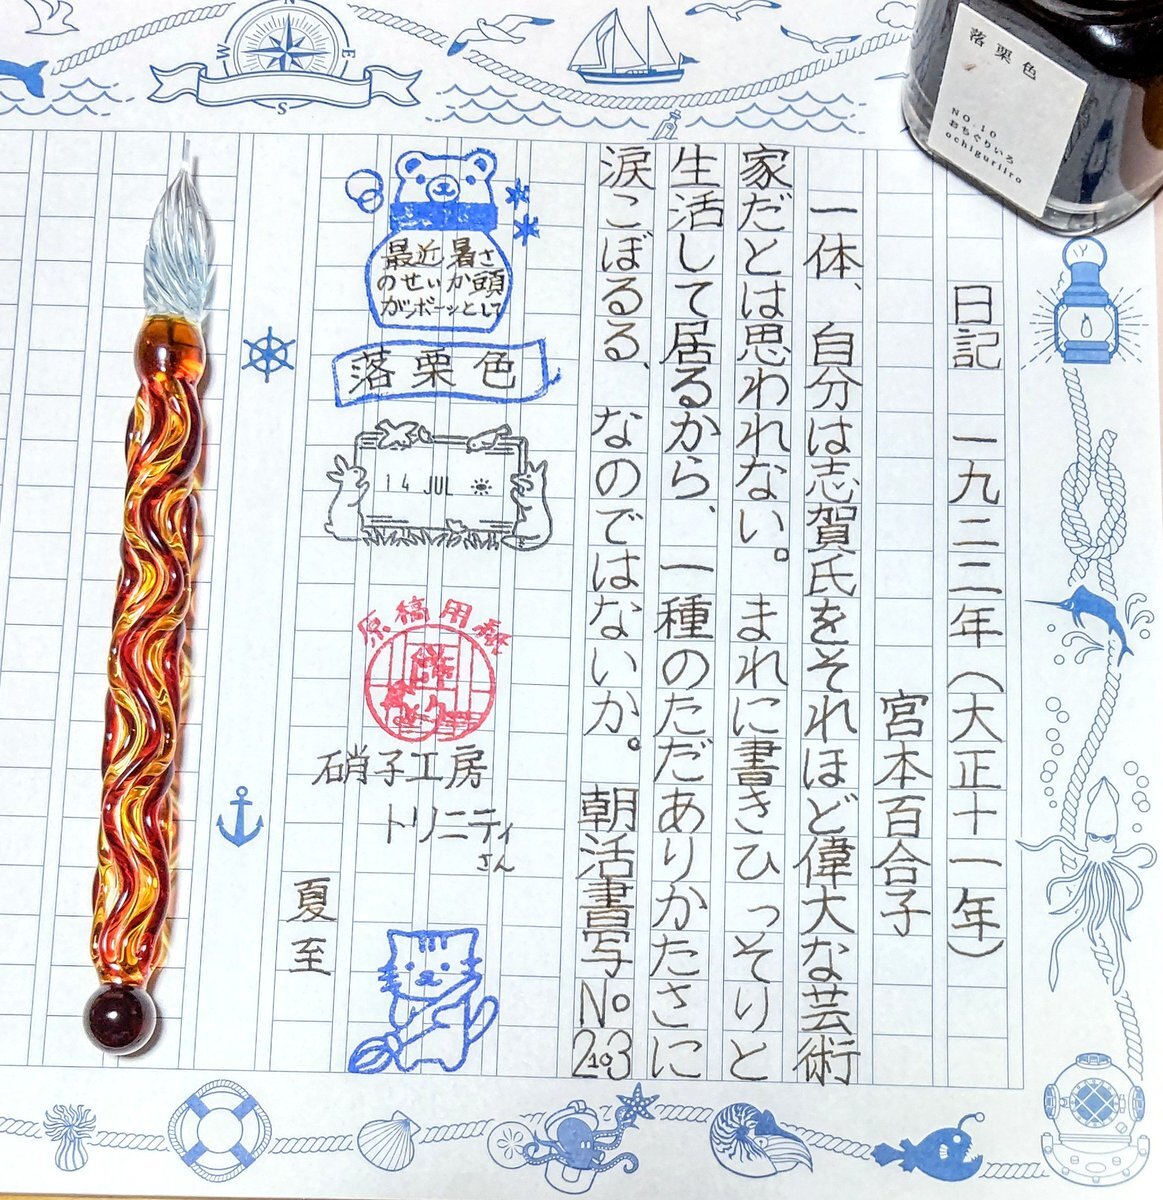 日記　一九二二年（大正十一年）
宮本百合子
一体、自分は志賀氏をそれほど偉大な芸術
家だとは思われない。まれに書きひっそりと
生活して居るから、一種のただありかたさに
涙こぼるる、なのではないか。朝活書写No
213
最近暑さ
のせいか頭
がボーッとして
落栗色
14 JUL
原稿用紙
硝子工房
トリニティ
さん
夏至
落栗色
NO.10
おちぐりいろ
ochiguriiro
W
E
S